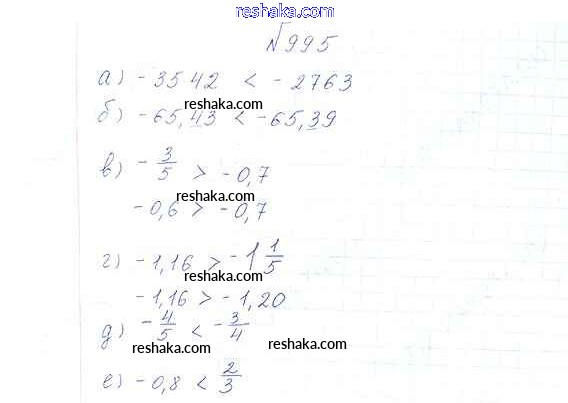 reshaka.com
№995
а) -3542 < -2763
reshaka.com
б) -65,43 < -65,39
в) -3/5 > -0,7
reshaka.com
-0,6 > -0,7
г) -1,16 > -1 1/5
reshaka.com
-1,16 > -1,20
д) -4/5 < -3/4
reshaka.com
reshaka.com
е) -0,8 < 2/3